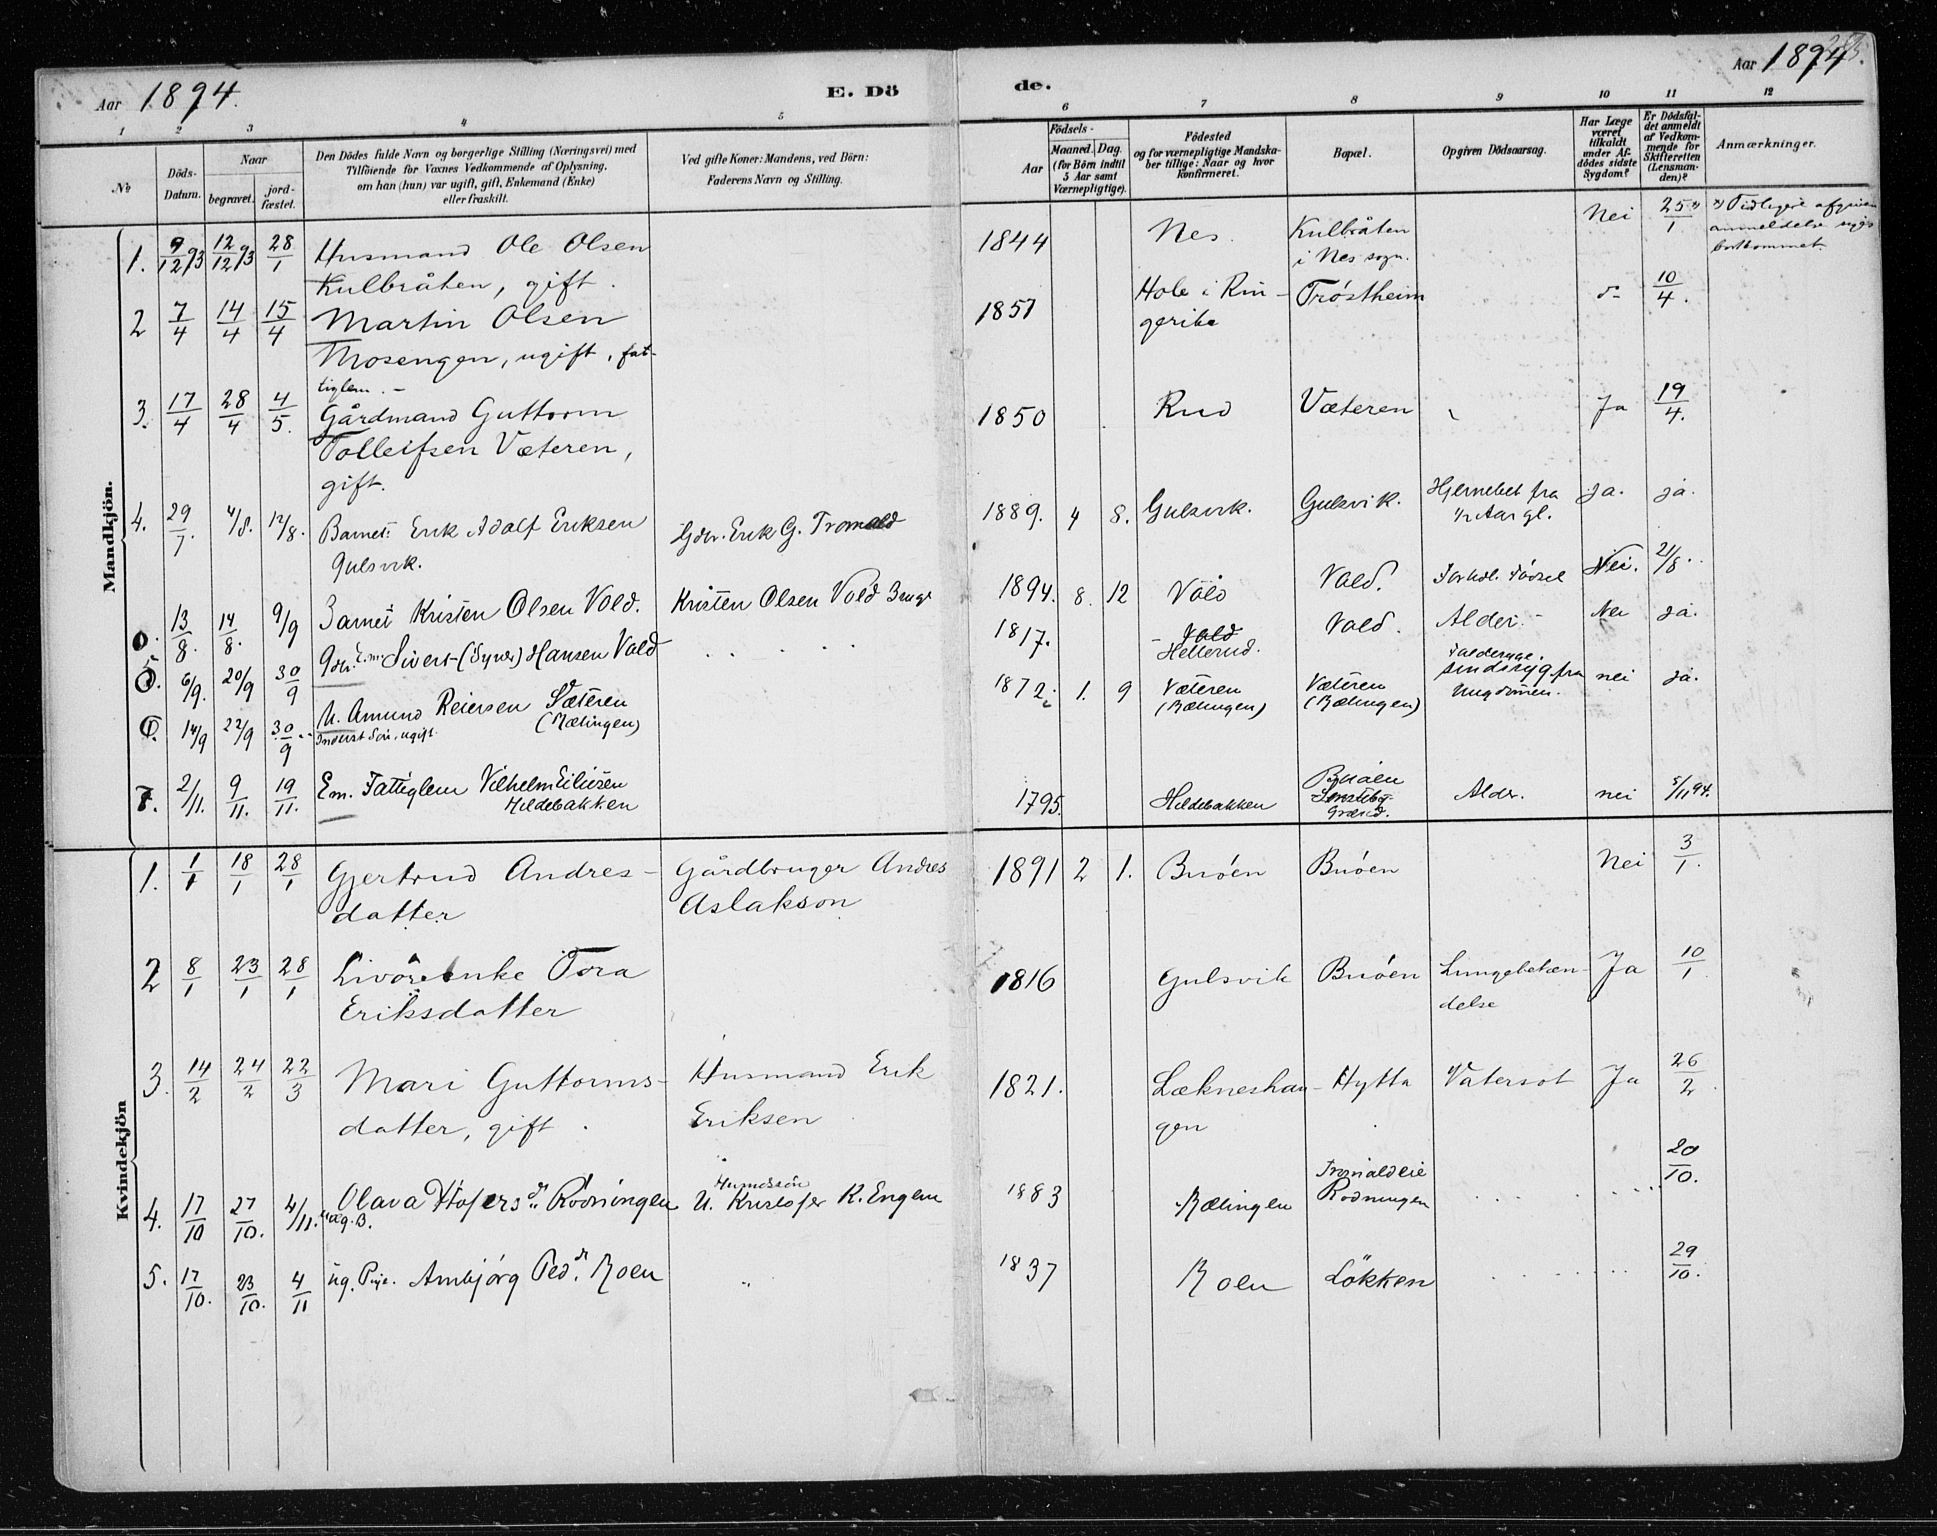 Aar 1894.
E. Dö
de.
Aar 1894
1 2 3 4 5
6 7 8 9 10 11 12
No
Döds-
Datum.
Naar
begravet.
jord-
fæstet.
Den Dödes fulde Navn og borgerlige Stilling (Næringsvei) med
Tilföiende for Voxnes Vedkommende af Oplysning,
om han (hun) var ugift, gift, Enkemand (Enke)
eller fraskilt.
Ved gifte Koner: Mandens, ved Börn:
Faderens Navn og Stilling.
Födsels-
Aar
Maaned. Dag.
(for Börn indtil
5 Aar samt
Værnepligtige).
Födested
og for værnepligtige Mandska-
ber tillige: Naar og hvor
konfirmeret.
Bopæl.
Opgiven Dödsaarsag.
Har Læge
været
tilkaldt
under Af-
dödes sidste
Sygdom?
Er Dödsfal-
det anmeldt
af Vedkom-
mende for
Skifteretten
(Lensman-
den)?
Anmærkninger.
Mandkjön.
1. 9/12 93 12/12 93 28/1 Husmand Ole Olsen 1844 Nes. Kulbråten Nei 25/1 Tidligere
Kulbråten, gift. i Nes sogn. anmeldelse
bortkommet.
2 7/4 14/4 15/4 Martin Olsen 1857 Hole i Rin- Tröstheim 10/4.
Mosengen, ugift, fat- gerike
tiglem. -
3. 17/4 28/4 4/5. Gårdmand Guttorm 1850 Rud Væteren Ja 19/4.
Tolleifsen Væteren,
gift.
4. 29/7. 4/8. 12/8. Barnet: Erik Adolf Eriksen Gdbr. Erik G. Tromald 1889. 4 8. Gulsvik. Gulsvik. Hjernebet fra ja. ja.
Gulsvik. 1/2 Aar gl.
13/8. 14/8. 9/9 Barnet Kristen Olsen Vold. Kristen Olsen Vold 1894. 8. 12 Vold Vold. Födsel Nei. 21/8.
5. 6/9. 20/9 30/9 Sivert (Syver) Hansen Vold 1817. Vold Vold. Alder. Nei ja.
Hellerud.
14/9 22/9 30/9 U. Amund Reiersen Sæteren 1872. 1. 9 Væteren Væteren sindssyg fra nei ja.
Inderst Sön, ugift. (Rælingen) (Rælingen) (Rælingen) Ungdommen.
7. 2/11. 9/11. 19/11. Em. Fattiglem Vilhelm Eiliusen 1795. Hildebakken Buöen Alder. nei 5/11 94.
Hildebakken
Kvindekjön
1. 1/1 18/1 28/1 Gjertrud Andres- Gårdbruger Andres 1891 2 1. Buöen Buöen Nei 3/1.
datter Aslakson
2 8/1 23/1 28/1 Livöreenke Tora 1816 Gulsvik Buöen Lungebetæn- Ja 10/1
Eriksdatter delse
3. 14/2 24/2 22/3 Mari Guttorms- Husmand Erik 1821. Lækneshau- Hytta Vatersot Ja 26/2.
datter, gift. Eriksen gen
4. 17/10 27/10. 4/11. Olava Rödningen U. Kristofer K. Engen 1883 Rælingen Tromaldeie 20/10.
Rodningen
5. 17/10. 23/10. 4/11 ug. Pige. Ambjörg Ped.dr Roen " 1837 Roen Lökken 29/10.